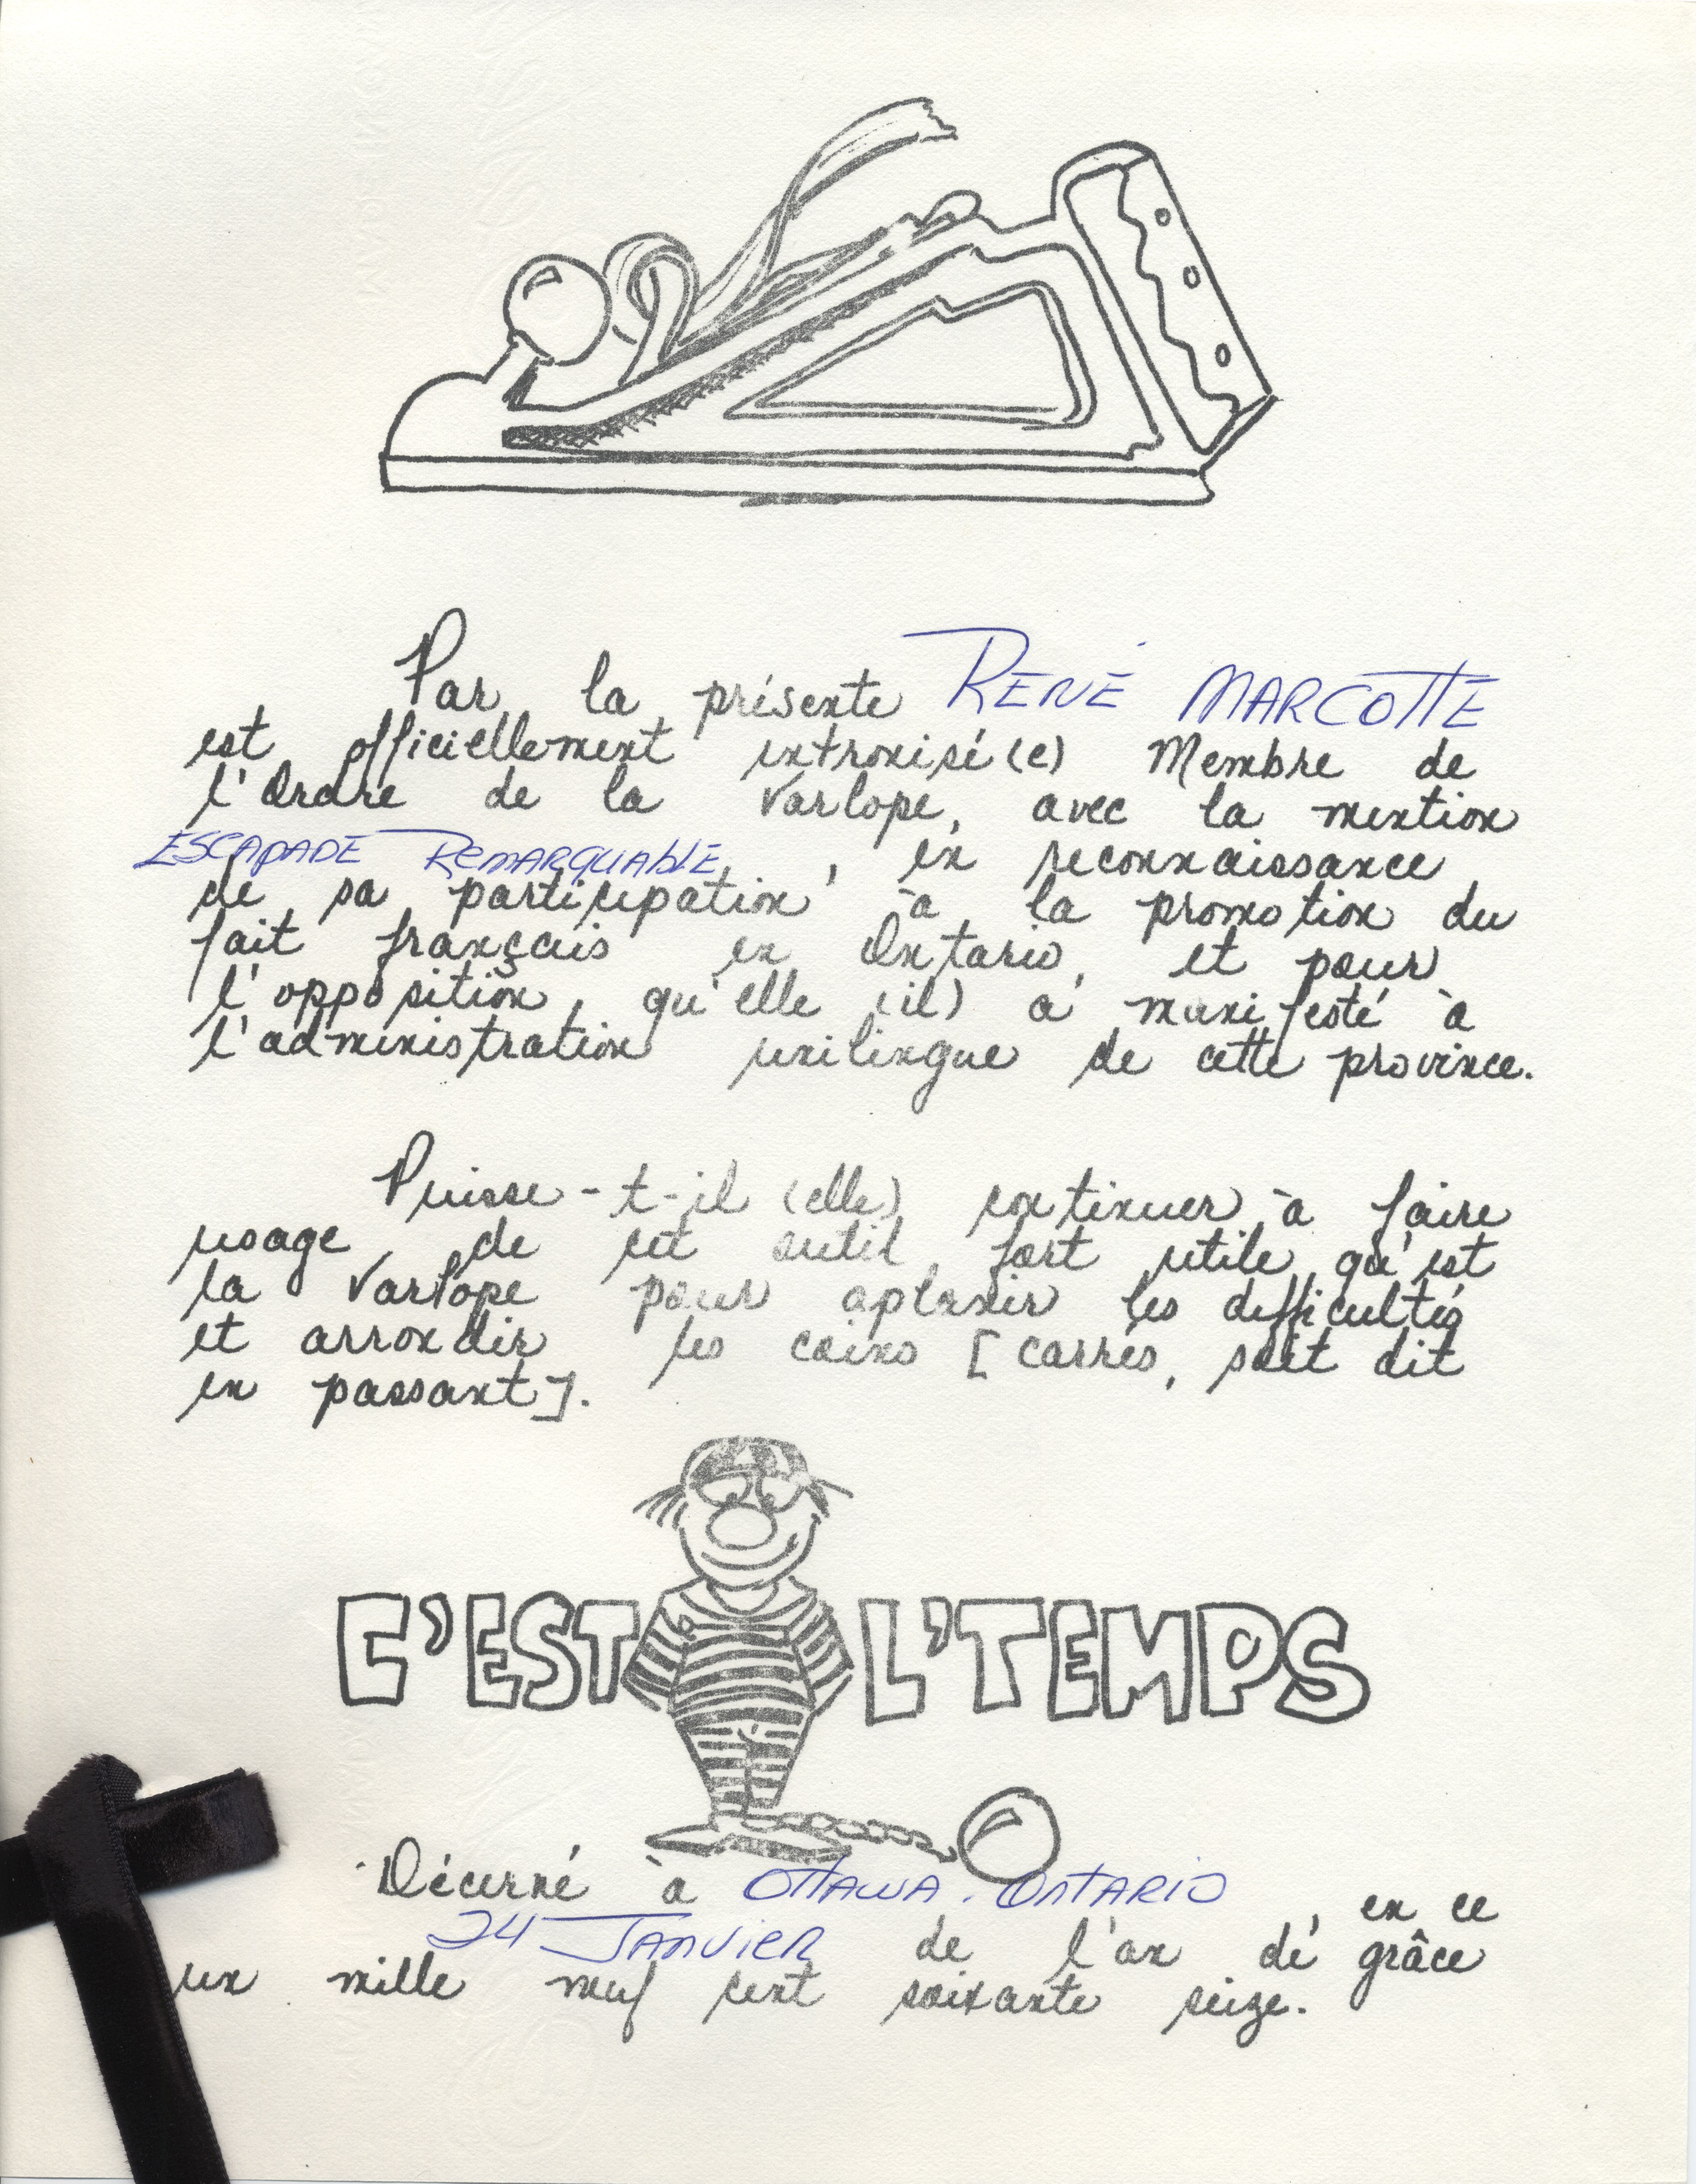 Par la présente RENÉ MARCOTTE
est officiellement intronisé(e) Membre de
l'Ordre de la Varlope, avec la mention
ESCAPADE REMARQUABLE, en reconnaissance
de sa participation à la promotion du
fait français en Ontario, et pour
l'opposition qu'elle (il) a manifesté à
l'administration unilingue de cette province.
Puisse-t-il (elle) continuer à faire
usage de cet outil fort utile qu'est
la Varlope pour aplanir les difficultés
et arrondir les coins [carrés, soit dit
en passant].
C'EST L'TEMPS
Décerné à OTTAWA. ONTARIO, en ce
24 JANVIER de l'an de grâce
un mille neuf cent soixante seize.